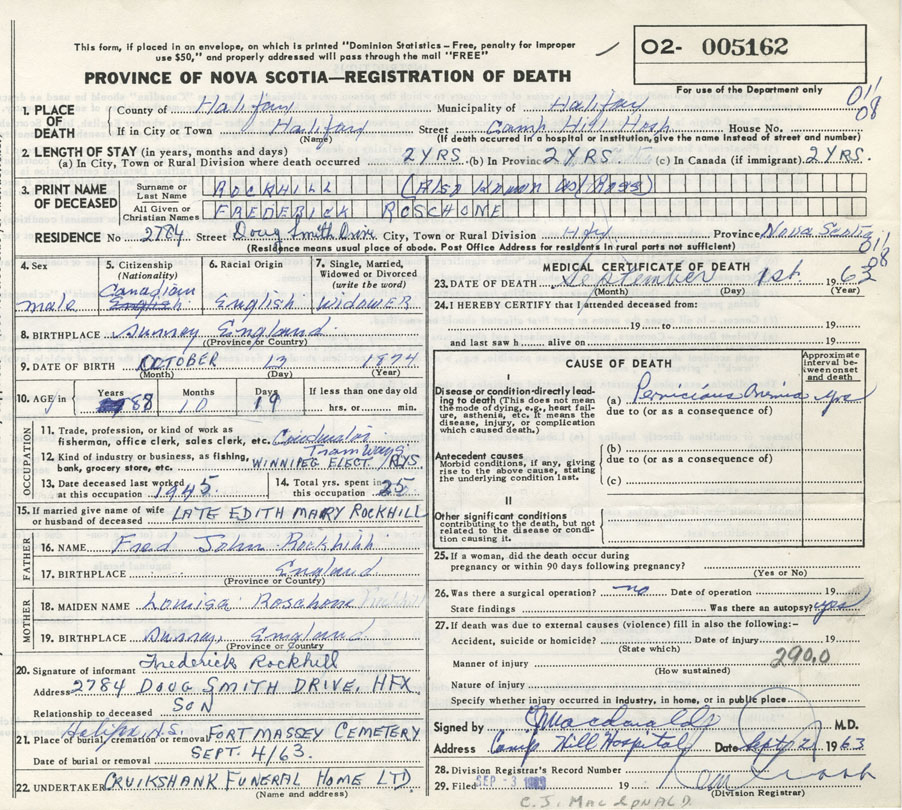 This form, if placed in an envelope, on which is printed "Dominion Statistics – Free, penalty for improper
use $50," and properly addressed will pass through the mail "FREE"
O2- 005162
PROVINCE OF NOVA SCOTIA—REGISTRATION OF DEATH
For use of the Department only
011
08
1. PLACE OF DEATH
County of Halifax Municipality of Halifax
If in City or Town Halifax Street Camp Hill Hosp House No.
(Name) (If death occurred in a hospital or institution, give the name instead of street and number)
2. LENGTH OF STAY (in years, months and days)
(a) In City, Town or Rural Division where death occurred 2 YRS (b) In Province 2 YRS. (c) In Canada (if immigrant) 2 YRS.
3. PRINT NAME OF DECEASED
Surname or Last Name ROCKHILL (Also known as Ross)
All Given or Christian Names FREDERICK ROSCHOME
RESIDENCE No 2784 Street Doug Smith Drive City, Town or Rural Division Hfx Province Nova Scotia
(Residence means usual place of abode. Post Office Address for residents in rural parts not sufficient)
011
08
4. Sex male
5. Citizenship (Nationality) Canadian English
6. Racial Origin English
7. Single, Married, Widowed or Divorced (write the word) WIDOWER
8. BIRTHPLACE Surrey England
(Province or Country)
9. DATE OF BIRTH OCTOBER 13 1874
(Month) (Day) (Year)
10. AGE in Years 88 Months 10 Days 19 If less than one day old hrs. or min.
OCCUPATION
11. Trade, profession, or kind of work as fisherman, office clerk, sales clerk, etc. Conductor
12. Kind of industry or business, as fishing, bank, grocery store, etc. Tramways WINNIPEG ELECT. / RYS
13. Date deceased last worked at this occupation 1945.
14. Total yrs. spent in this occupation 25
15. If married give name of wife or husband of deceased LATE EDITH MARY ROCKHILL
FATHER
16. NAME Fred John Rockhill
17. BIRTHPLACE England
(Province or Country)
MOTHER
18. MAIDEN NAME Louisa Roschome
19. BIRTHPLACE Surrey, England
(Province or Country)
20. Signature of informant Frederick Rockhill
Address 2784 DOUG SMITH DRIVE, HFX
Relationship to deceased SON
21. Place of burial, cremation or removal Halifax, N.S. FORT MASSEY CEMETERY
Date of burial or removal SEPT. 4/63.
22. UNDERTAKER CRUIKSHANK FUNERAL HOME LTD.
(Name and address)
MEDICAL CERTIFICATE OF DEATH
23. DATE OF DEATH September 1st 1963
(Month) (Day) (Year)
24. I HEREBY CERTIFY that I attended deceased from:
19 to 19
and last saw h alive on 19
CAUSE OF DEATH
Approximate interval between onset and death
I
Disease or condition directly leading to death (This does not mean the mode of dying, e.g., heart failure, asthenia, etc. It means the disease, injury, or complication which caused death.)
(a) Pernicious Anemia yrs
due to (or as a consequence of)
Antecedent causes
Morbid conditions, if any, giving rise to the above cause, stating the underlying condition last.
(b)
due to (or as a consequence of)
(c)
II
Other significant conditions contributing to the death, but not related to the disease or condition causing it.
25. If a woman, did the death occur during pregnancy or within 90 days following pregnancy?
(Yes or No)
26. Was there a surgical operation? no Date of operation 19
State findings Was there an autopsy? yes
27. If death was due to external causes (violence) fill in also the following:–
Accident, suicide or homicide? Date of injury 19
(State which)
290.0
Manner of injury
(How sustained)
Nature of injury
Specify whether injury occurred in industry, in home, or in public place
Signed by CJMacdonald M.D.
Address Camp Hill Hospital Date Sept 2 1963
28. Division Registrar's Record Number
29. Filed SEP - 3 1963 19
(Division Registrar)
C. J. MacDONALD